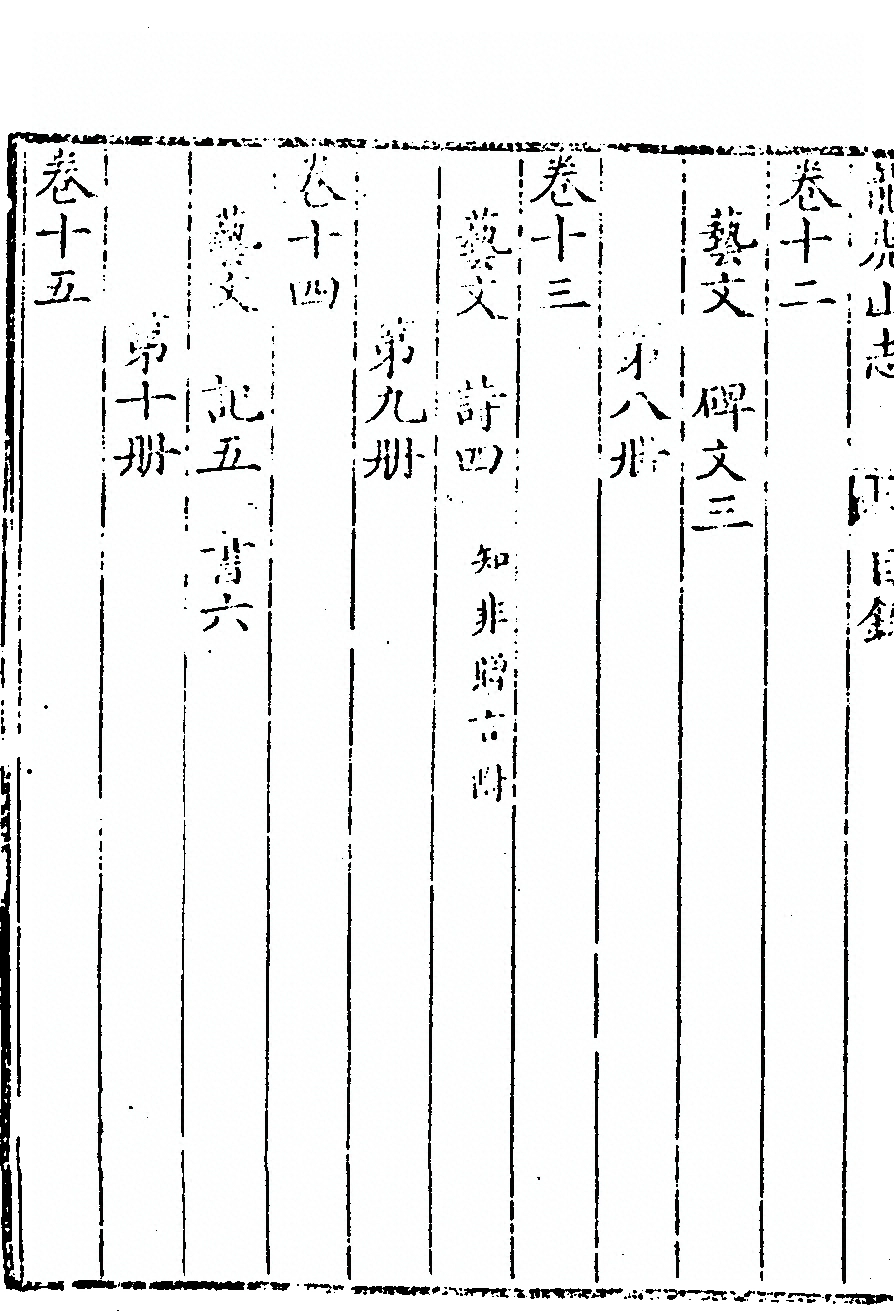 龍虎山志 目錄
卷十二
藝文 碑文三
第八册
卷十三
藝文 詩四 知非贈言附
第九册
卷十四
藝文 記五 書六
第十册
卷十五